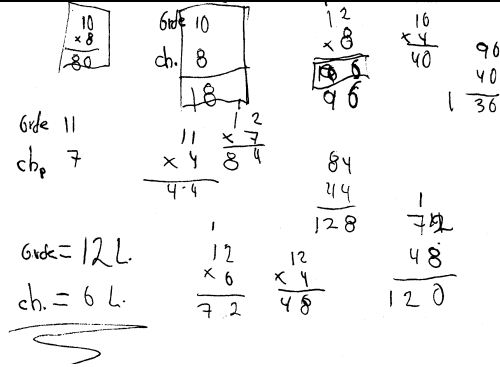 10
× 8
80
Grde 10
ch. 8
18
12
× 8
96
10
× 4
40
96
40
136
Grde 11
chp 7
11
× 4
44
1 2
× 7
8 4
84
44
128
Grde = 12 L.
ch. = 6 L.
1
12
× 6
72
12
× 4
48
1
72
48
120